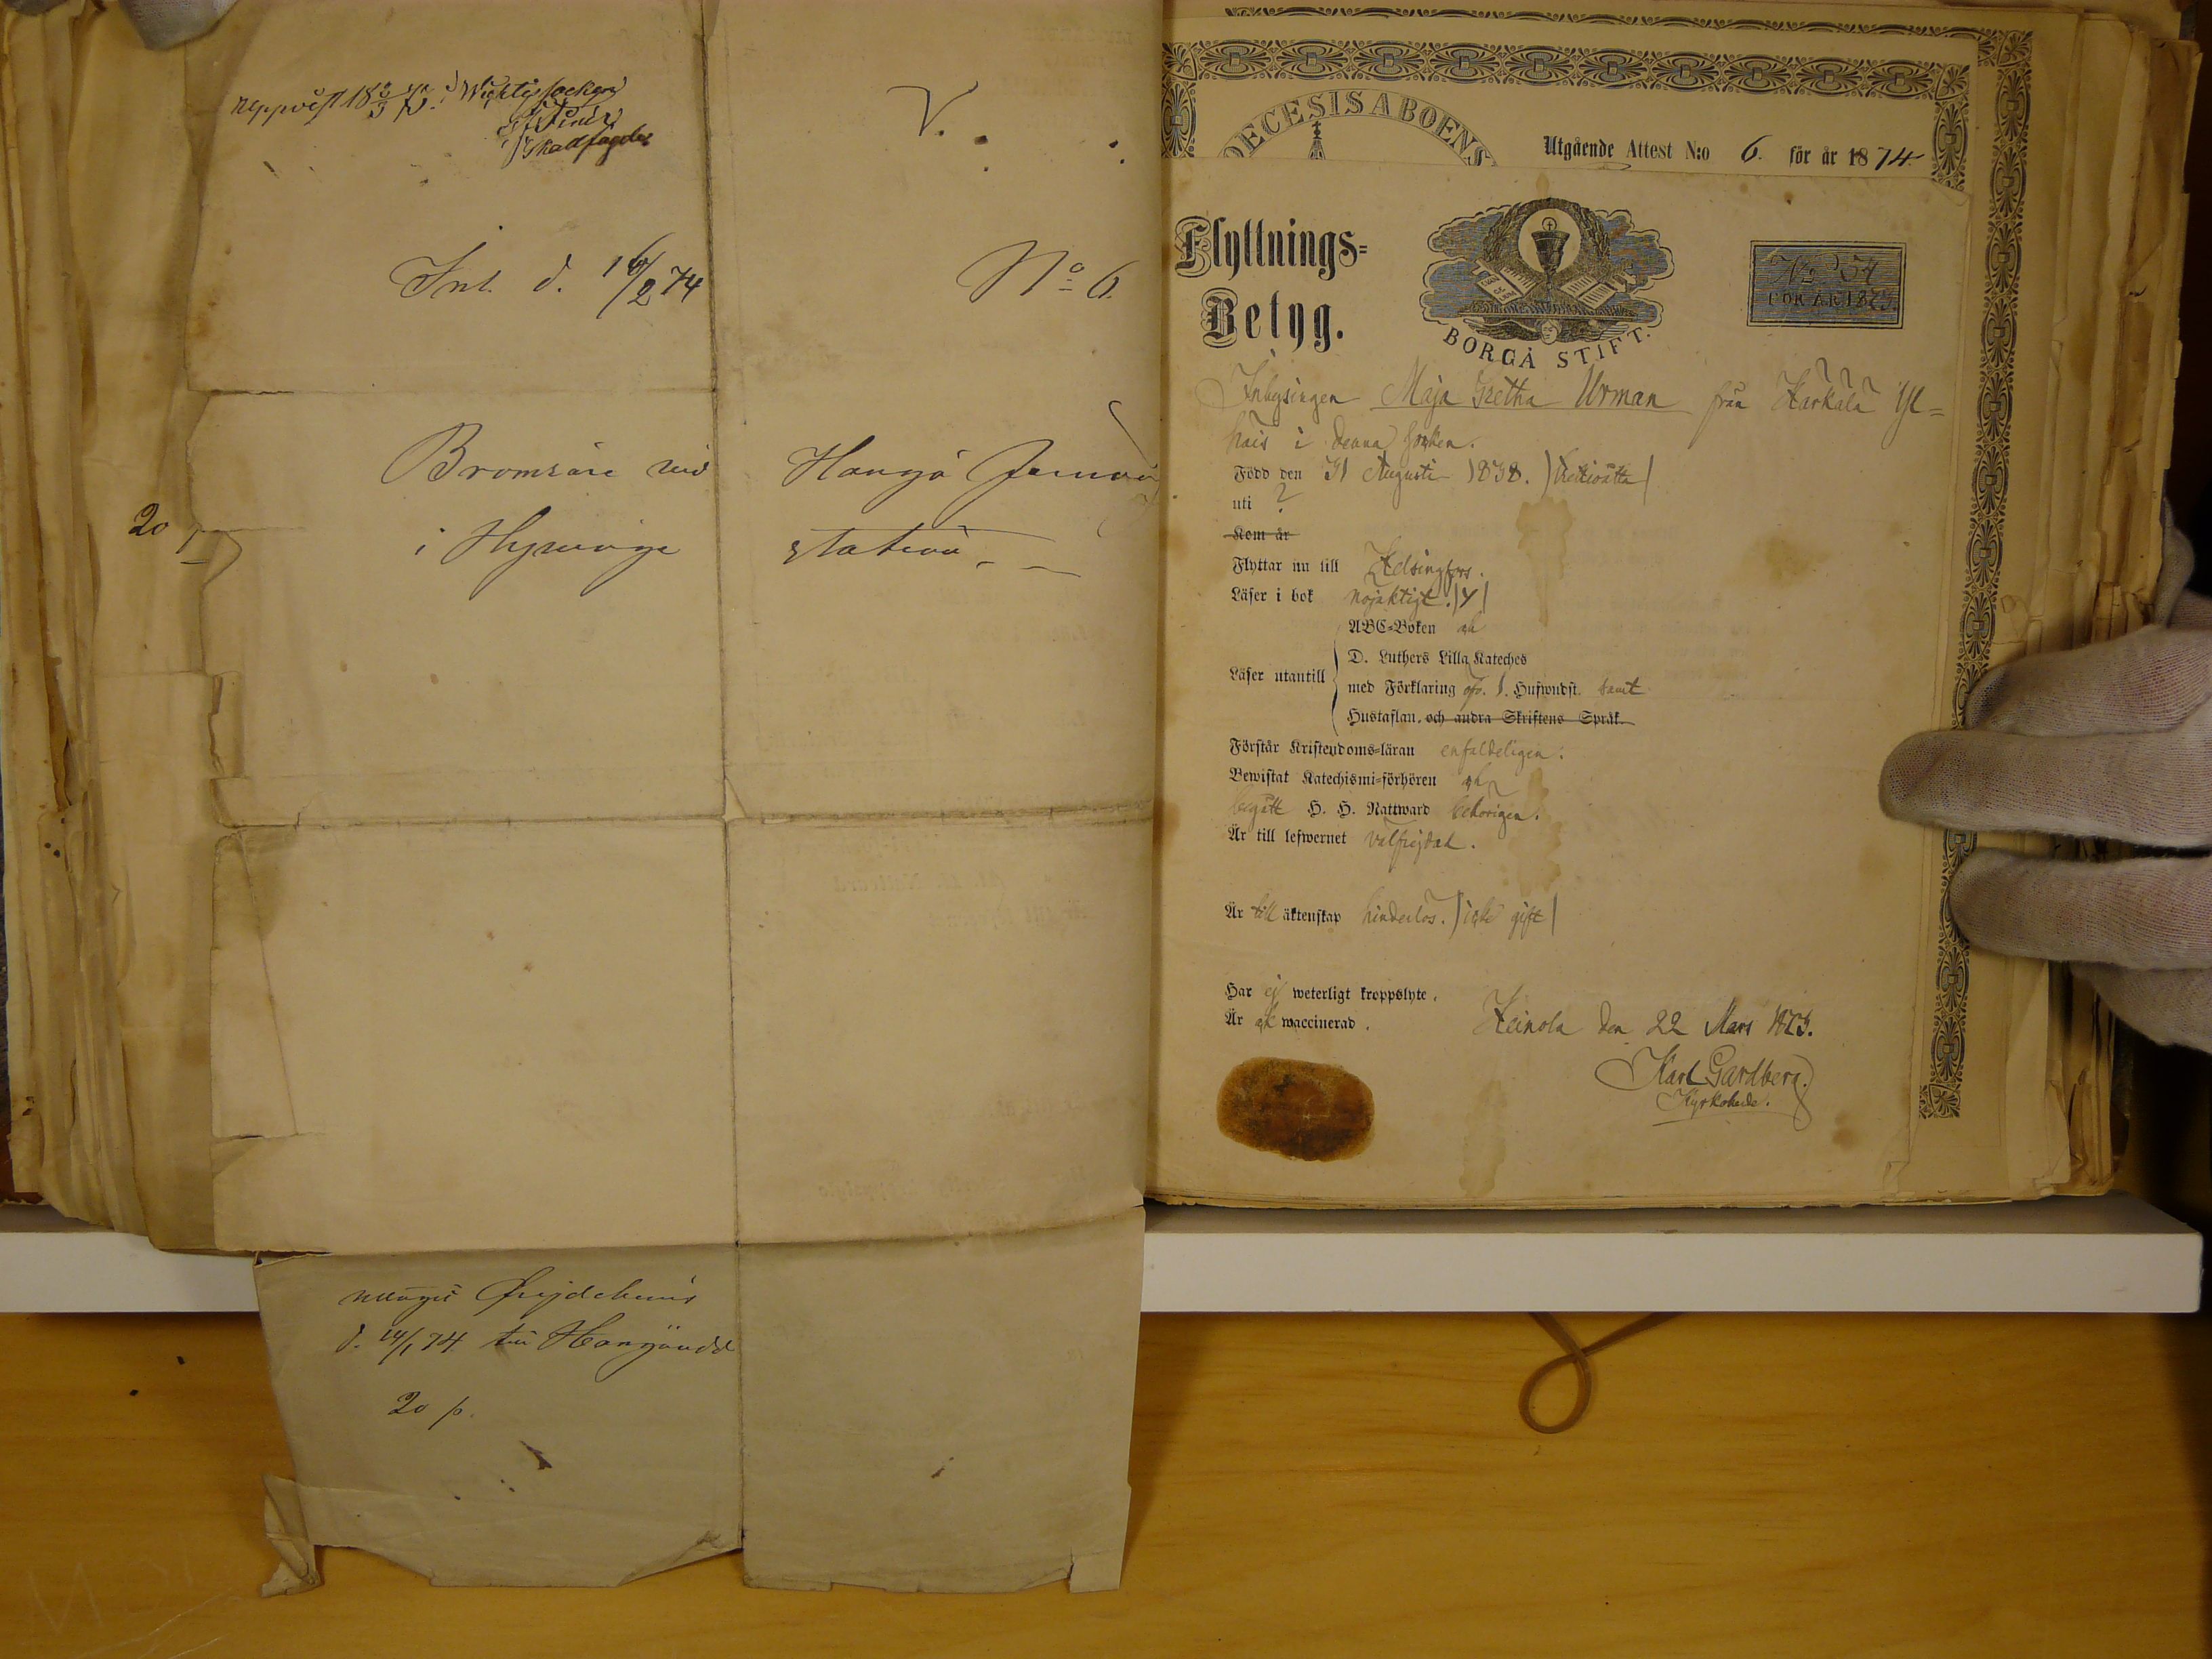 uppvist 18 2/3 74. i Wichtis socken
Skattfogde
Inl. d. 16/2 74
V.
No 6.
Bromsare vid Hangö Jernväg
20 p
i Hyvinge station
d. 14/1 74 till Hangöudd
20 p.
DECESIS ABOENS
Utgående Attest N:o 6. för år 1874.
Flyttnings-
Betyg.
BORGÅ STIFT.
No 54
FÖR ÅR 1873.
Inhysingen Maja Gretha Urman från Härkälä Yl=
hais i denna socken.
Född den 31 Augusti 1838. /trettioåtta/
uti ?
Kom år
Flyttar nu till Helsingfors.
Läser i bok nöjaktigt.
ABC-Boken ok
Läser utantill
D. Luthers Lilla Kateches
med Förklaring öfv. 1. Hufwudst. samt
Hustaflan. och andra Skriftens Språk.
Förstår Kristendoms-läran enfaldeligen.
Bewistat Katechismi-förhören ok
begått H. H. Nattward behörigen.
Är till lefwernet välfrejdad.
Är till äktenskap hinderlös. /icke gift/
Har ej weterligt kroppslyte.
Är ok waccinerad.
Heinola den 22 Mars 1873.
Karl Gardberg.
Kyrkoherde.